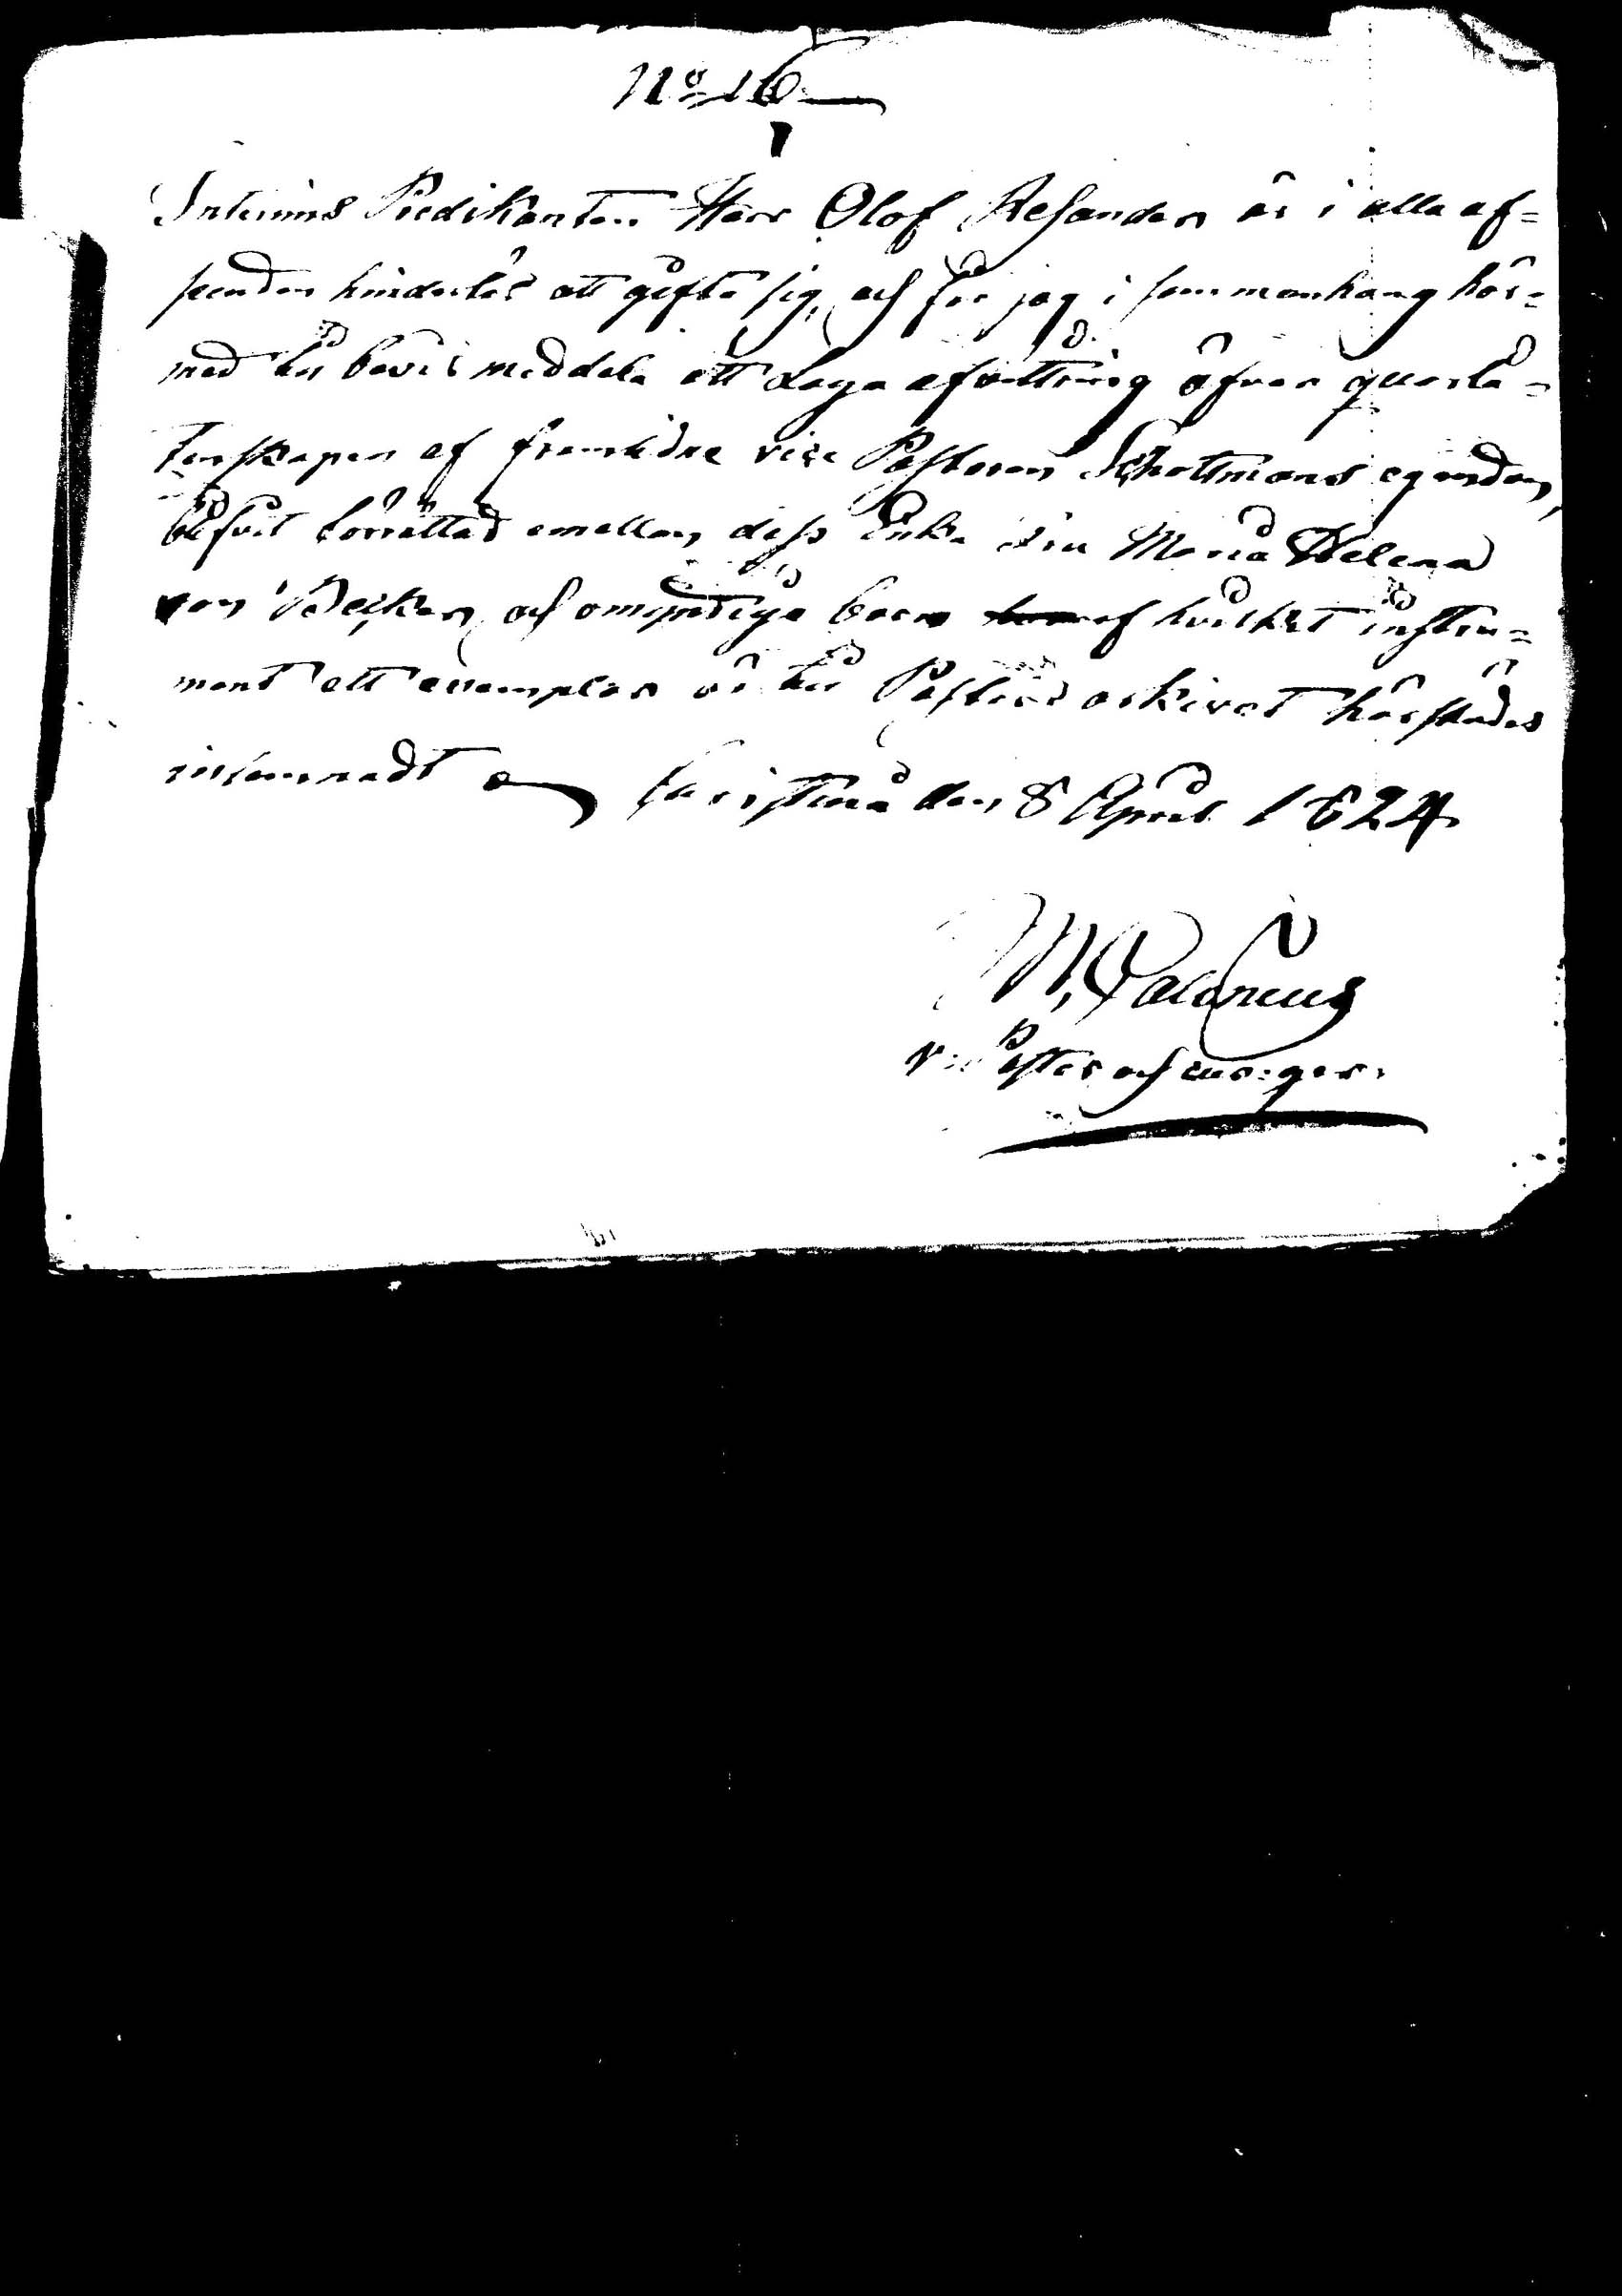 No 16
Interims Predikanten Herr Olof Resander är i alla af=
seenden hinderlös att gifta sig, och får jag i sammanhang här=
med till bevis meddela att Laga afvittring öfver quarlå=
tenskapen af framlidne vice Pastoren Schottmans egendom,
blifvit förrättad emellan dess Enka Fru Maria Helena
von Becker och omyndiga barn af hvilket instru=
ment ett exemplar är till Pastors arkivet härstädes
inlemnadt Christina den 8 April 1824
M,
v: Pastor och